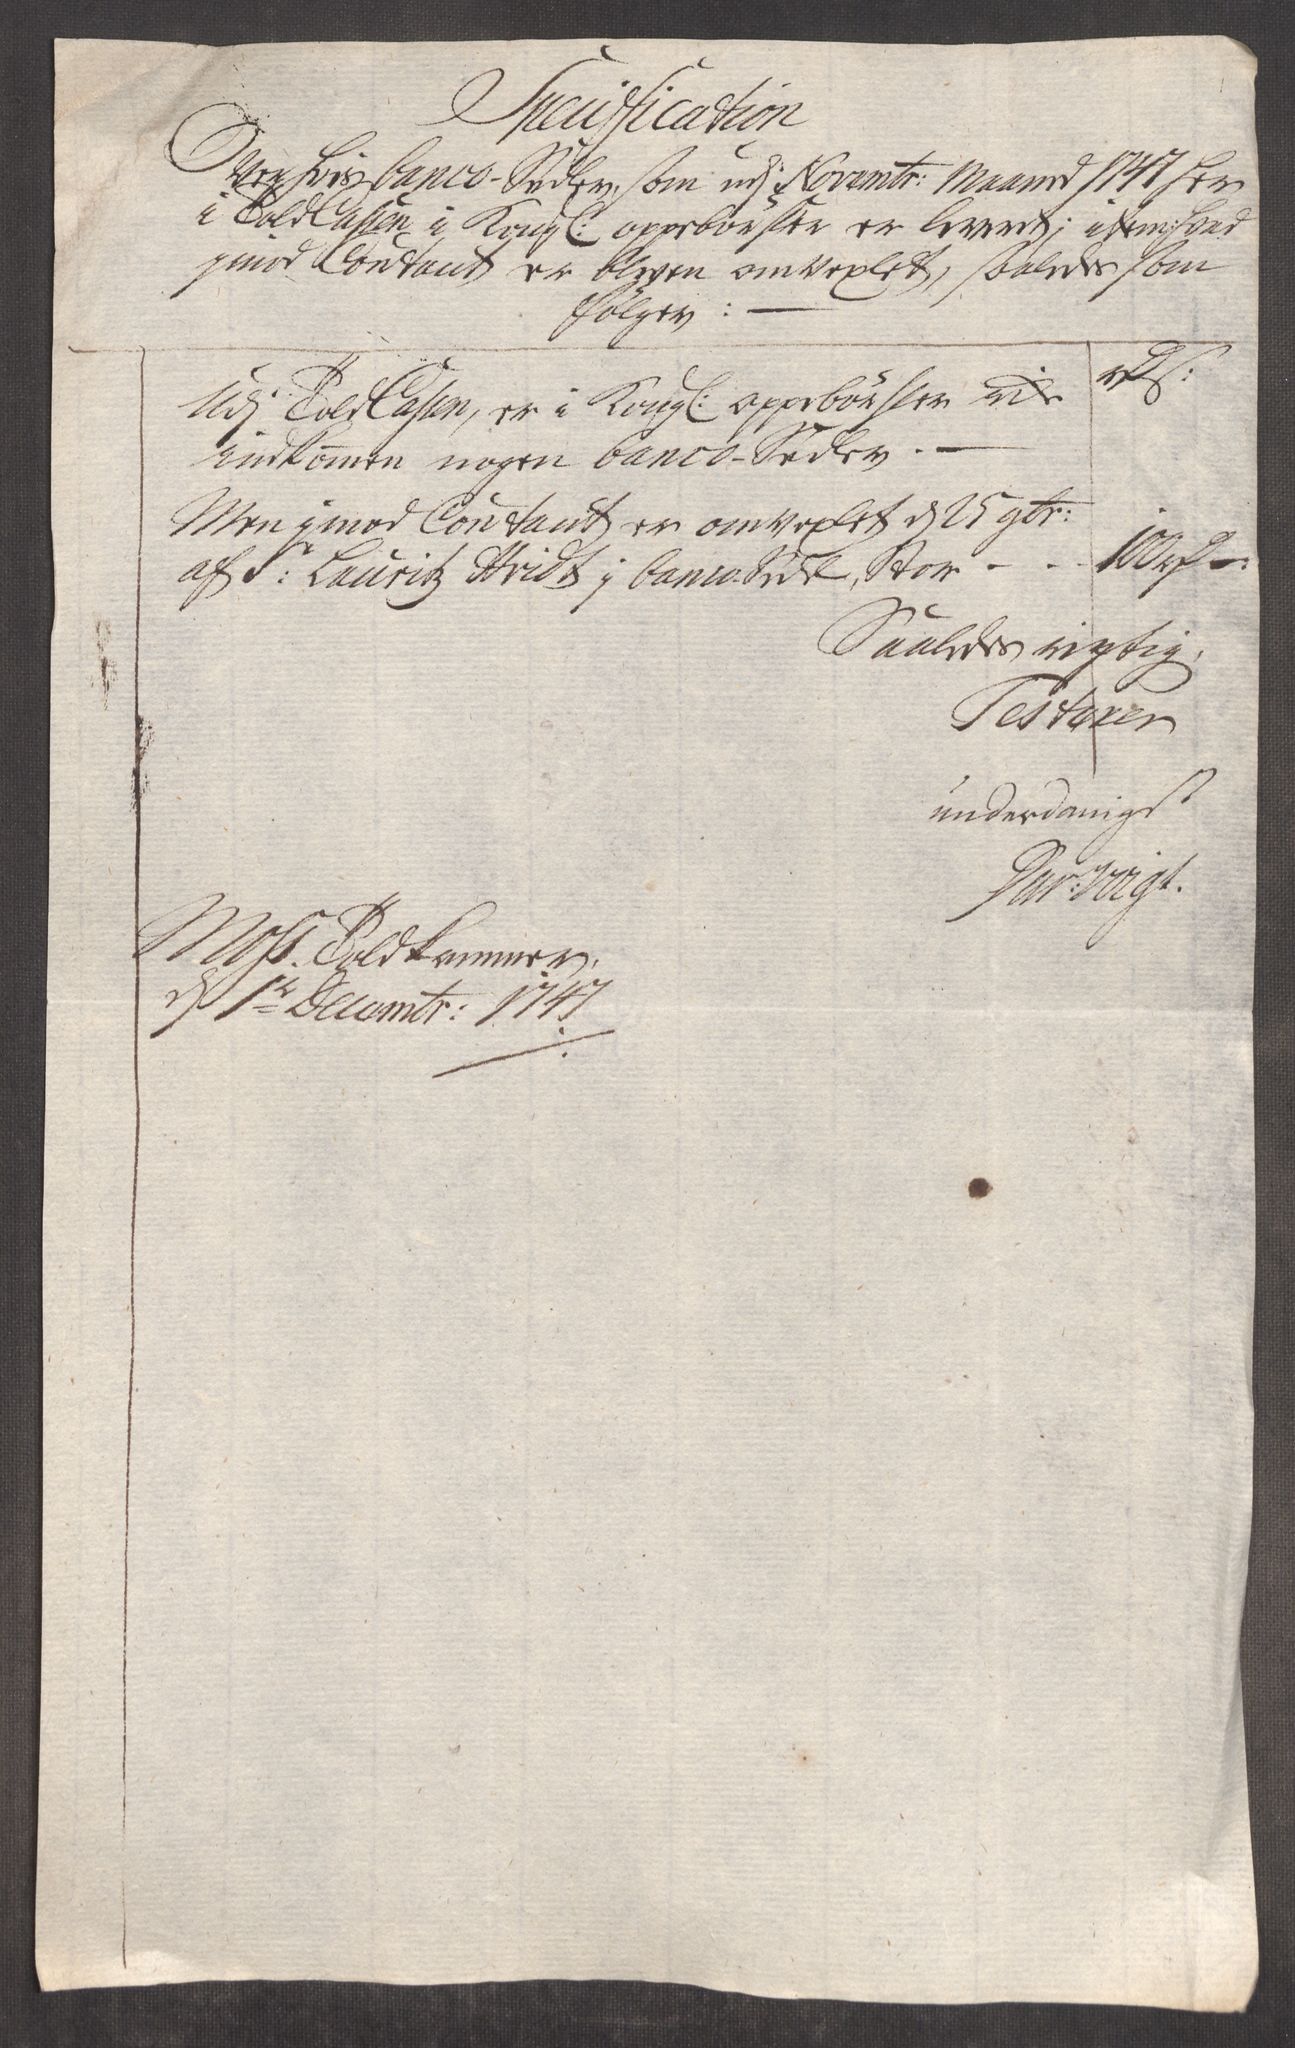 Specification
Over hvis banco-Sedler, som udj Novembr: Maaned 1747 her
i Told Cassen i Kongl: oppebørsler er leveret; item hvad
imod Contant er bleven omvexlet, saaledes som
følger: —
rdl:
Udj Told Cassen, er i Kongl: oppebørsler icke
indkommen nogen banco-Sedler. —
Men imod Contant er omvexlet d 25 9br:
af Sr: Lauritz 1 banco-Sedel, Stor - - - 100 rd —
Saaledes rigtig,
Testerer
underdanigst
Voigt.
Moss Toldkammer,
d 1te Decembr: 1747